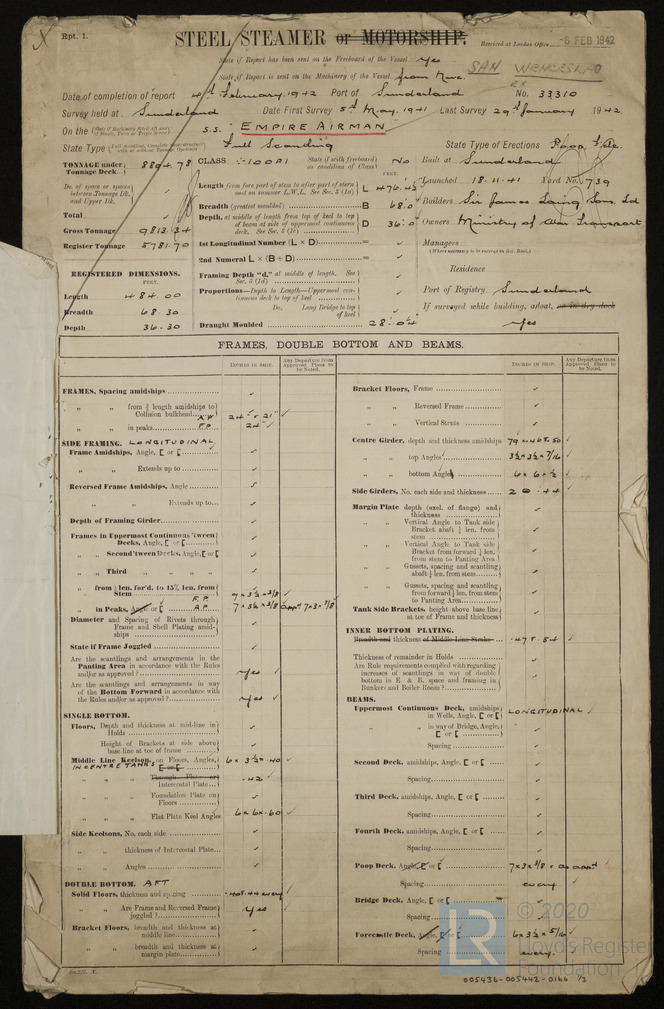 Rpt. 1.
STEEL STEAMER or MOTORSHIP.
Received at London Office 6 FEB 1942
State if Report has been sent on the Freeboard of the Vessel Yes
State if Report is sent on the Machinery of the Vessel from Nwc.
SAN WENCESLAO
EX
Date of completion of report 4th February, 1942 Port of Sunderland No. 33310
Survey held at Sunderland Date First Survey 5th May, 1941 Last Survey 29th January 1942.
On the S.S. EMPIRE AIRMAN
State Type Full Scantling State Type of Erections Poop, F'cle.
TONNAGE under Tonnage Deck 8894.78 CLASS +100A1 State if with freeboard as condition of Class No Built at Sunderland
Launched 18-11-41 Yard No. 739
Do. of space or spaces between Tonnage Dk. and Upper Dk.
Length from fore part of stem to after part of stern post on summer L.W.L. See Sec. 3 (1a) L
Breadth (greatest moulded) B 68.0
Builders Sir James Laing & Sons, Ld
Total
Depth, at middle of length from top of keel to top of beam at side of uppermost continuous deck. See Sec. 3 (1c) D 36.0
Owners Ministry of War Transport
Gross Tonnage 9813.34
1st Longitudinal Number (L × D) =
Managers
Register Tonnage 5781.70
2nd Numeral L × (B + D) =
Residence
REGISTERED DIMENSIONS.
FEET.
Framing Depth "d," at middle of length. See Sec. 3 (1d)
Port of Registry Sunderland
Length 484.00
Proportions—Depth to Length—Uppermost continuous deck to top of keel
If surveyed while building, afloat, or in dry dock
Breadth 68.30
Do. Long Bridge to top of keel
Yes
Depth 36.30
Draught Moulded 28'.0¼
FRAMES, DOUBLE BOTTOM AND BEAMS.
INCHES IN SHIP.
Any Departure from Approved Plans to be Noted.
FRAMES, Spacing amidships
" " from ⅗ length amidships to Collision bulkhead
" " in peaks F.P. 24"
SIDE FRAMING. LONGITUDINAL
Frame Amidships, Angle, [ or [
" " Extends up to
Reversed Frame Amidships, Angle
" " Extends up to
Depth of Framing Girder
Frames in Uppermost Continuous 'tween Decks, Angle, [ or [
" " Second 'tween Decks, Angle, [ or [
" " Third " "
" " from ⅗ len. for'd. to 15% len. from Stem
" " in Peaks, Angle or [ F.P. 9 × 3½ × 3/8
A.P. 7 × 3½ × 3/8 appd 7×3×3/8
Diameter and Spacing of Rivets through Frame and Shell Plating amidships
State if Frame Joggled
Are the scantlings and arrangements in the Panting Area in accordance with the Rules and/or as approved? Yes
Are the scantlings and arrangements in way of the Bottom Forward in accordance with the Rules and/or as approved? Yes
SINGLE BOTTOM.
Floors, Depth and thickness at mid-line in Holds
Height of Brackets at side above base line at toe of frame
Middle Line Keelson, on Floors, Angles, [ or [ 6 × 3½ × .40
IN CENTRE TANKS
" " Through Plate or Intercostal Plate .42
" " Foundation Plate on Floors
" " Flat Plate Keel Angles 6 × 6 × .60
Side Keelsons, No. each side
" " thickness of Intercostal Plate
" " Angles
DOUBLE BOTTOM. AFT
Solid Floors, thickness and spacing
" " Are Frame and Reversed Frame joggled? Yes
Bracket Floors, breadth and thickness at middle line
" " breadth and thickness at margin plate
INCHES IN SHIP.
Any Departure from Approved Plans to be Noted.
Bracket Floors, Frame
" " Reversed Frame
" " Vertical Struts
Centre Girder, depth and thickness amidships
" " top Angles 3½ × 3½ × 7/16
" " bottom Angles 6 × 6 × ½
Side Girders, No. each side and thickness 2 @ .44
Margin Plate depth (excl. of flange) and thickness
" " Vertical Angle to Tank side Bracket abaft ¼ len. from stem
" " Vertical Angle to Tank side Bracket from forward ¼ len. from stem to Panting Area
" " Gussets, spacing and scantling abaft ¼ len. from stem
" " Gussets, spacing and scantling from forward ¼ len. from stem to Panting Area
Tank Side Brackets, height above base line at toe of Frame and thickness
INNER BOTTOM PLATING.
Breadth and thickness of Middle Line Strake .47 & .54
Thickness of remainder in Holds
Are Rule requirements complied with regarding increases of scantlings in way of double bottom in E. & B. space and framing in Bunkers and Boiler Room?
BEAMS.
Uppermost Continuous Deck, amidships in Wells, Angle, [ or [ LONGITUDINAL
" " in way of Bridge, Angle, [ or [
Spacing
Second Deck, amidships, Angle, [ or [
Spacing
Third Deck, amidships, Angle, [ or [
Spacing
Fourth Deck, amidships, Angle, [ or [
Spacing
Poop Deck, Angle, [ or [ 7×3×3/8 as appd
Spacing every
Bridge Deck, Angle, [ or [
Spacing
Forecastle Deck, Angle, [ or [ 6×3½×5/16
Spacing every
© 2020
LR
Lloyd's Register
Foundation
005436-005442-0166 1/3